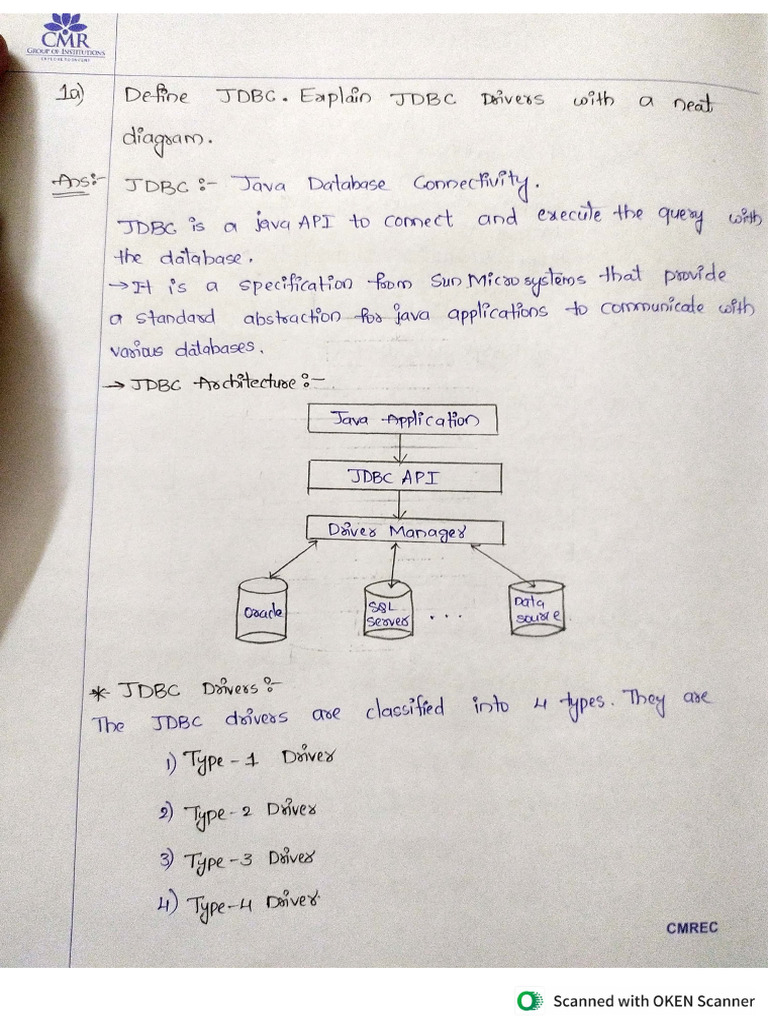 CMR
GROUP OF INSTITUTIONS
EXPLORE TO INVENT
1a) Define JDBC. Explain JDBC Drivers with a neat
diagram.
Ans:- JDBC :- Java Database Connectivity.
JDBC is a java API to connect and execute the query with
the database.
→ It is a specification from Sun Microsystems that provide
a standard abstraction for java applications to communicate with
various databases.
→ JDBC Architecture:-
Java Application
JDBC API
Driver Manager
Oracle
SQL
Server
...
Data
source
* JDBC Drivers:-
The JDBC drivers are classified into 4 types. They are
1) Type-1 Driver
2) Type-2 Driver
3) Type-3 Driver
4) Type-4 Driver
CMREC
Scanned with OKEN Scanner